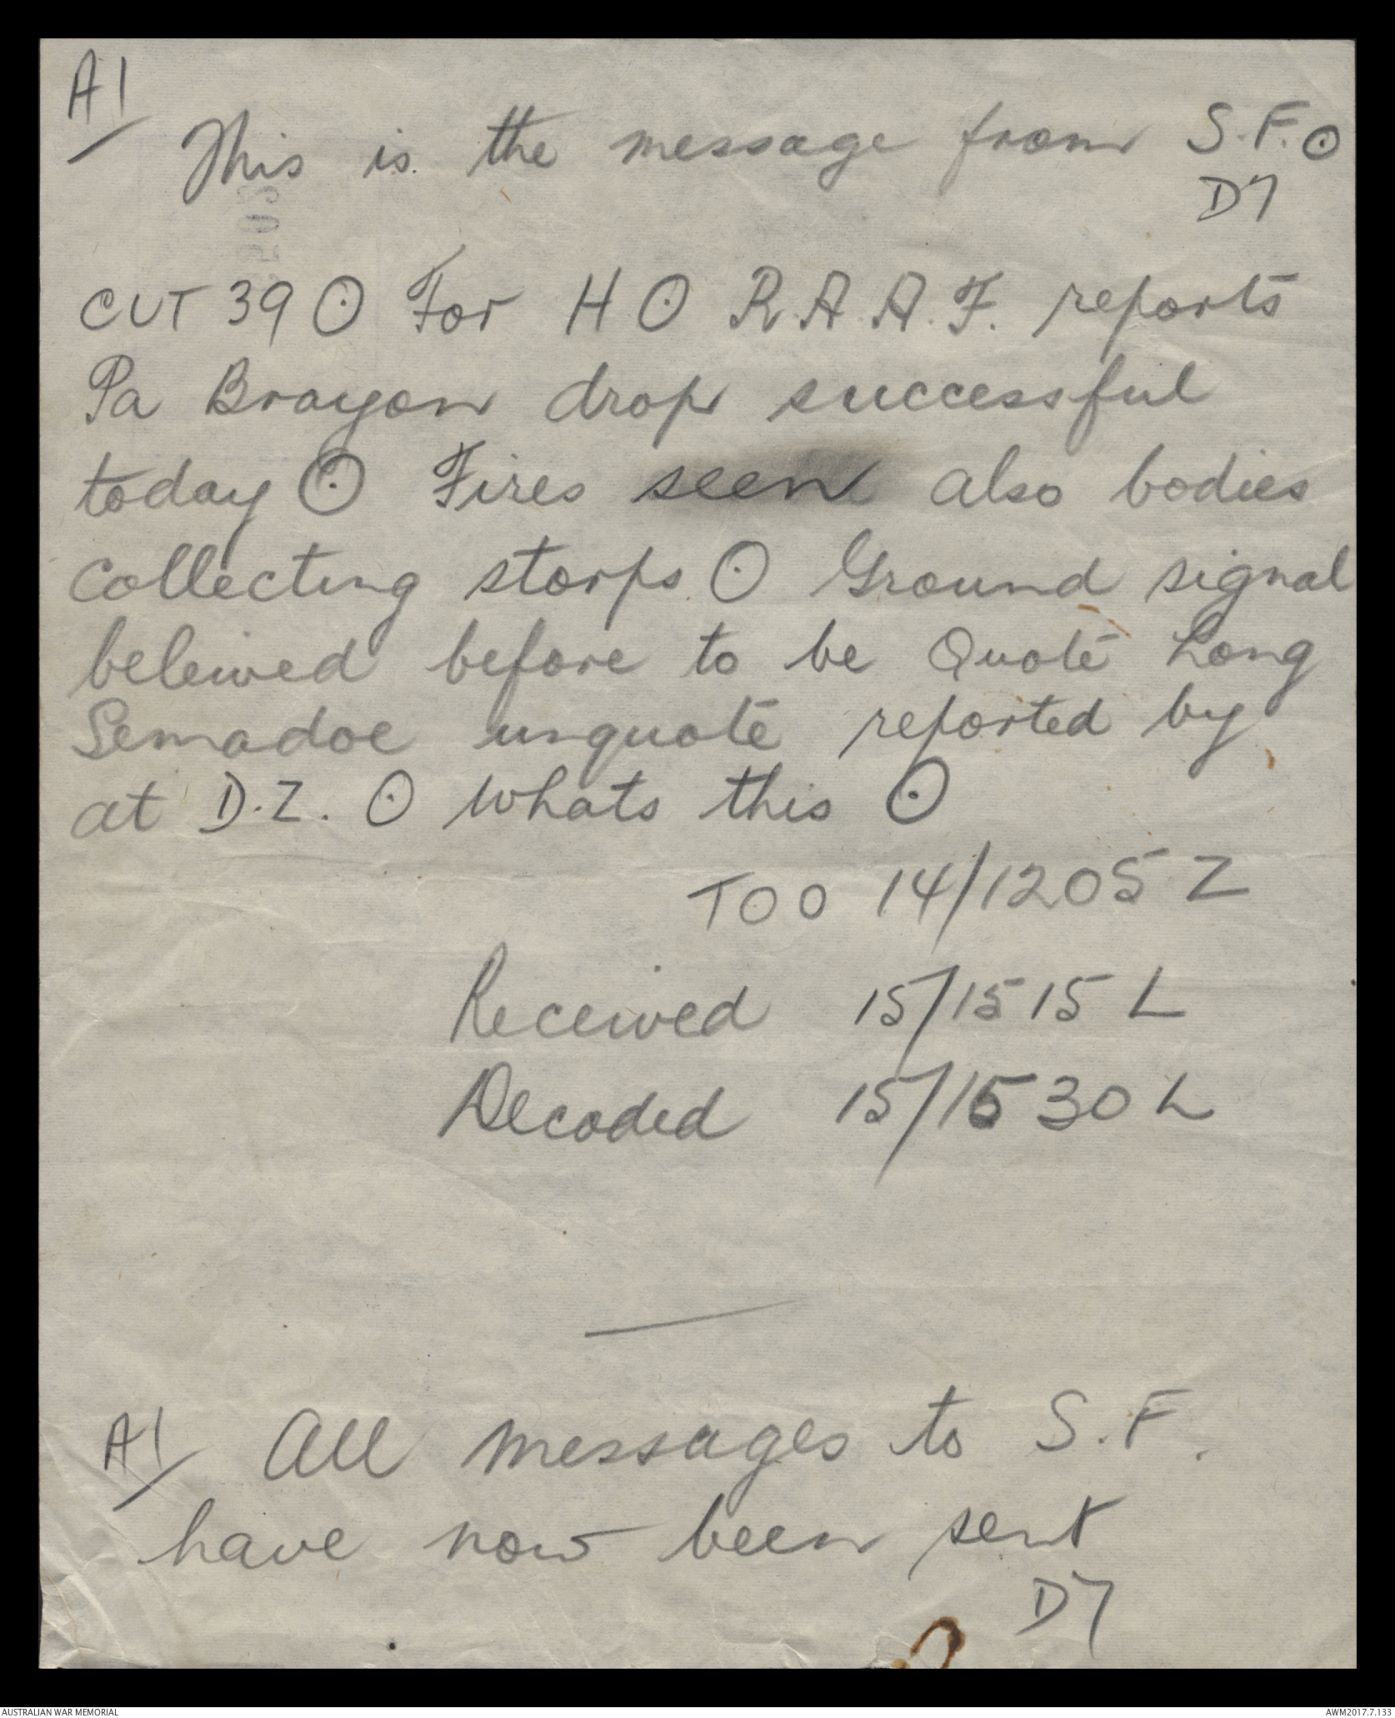 A1
This is the message from S.F. ⊙
D7
CUT 39 ⊙ For H ⊙ R.A.A.F. reports
Pa Brayon drop successful
today ⊙ Fires seen also bodies
collecting storps ⊙ Ground signal
beleived before to be Quote Long
Semadoe unquote reported by
at D.Z. ⊙ Whats this ⊙
TOO 14/1205 Z
Received 15/1515 L
Decoded 15/1530 L
A1 All messages to S.F.
have now been sent
D7
AUSTRALIAN WAR MEMORIAL
AWM2017.7.133